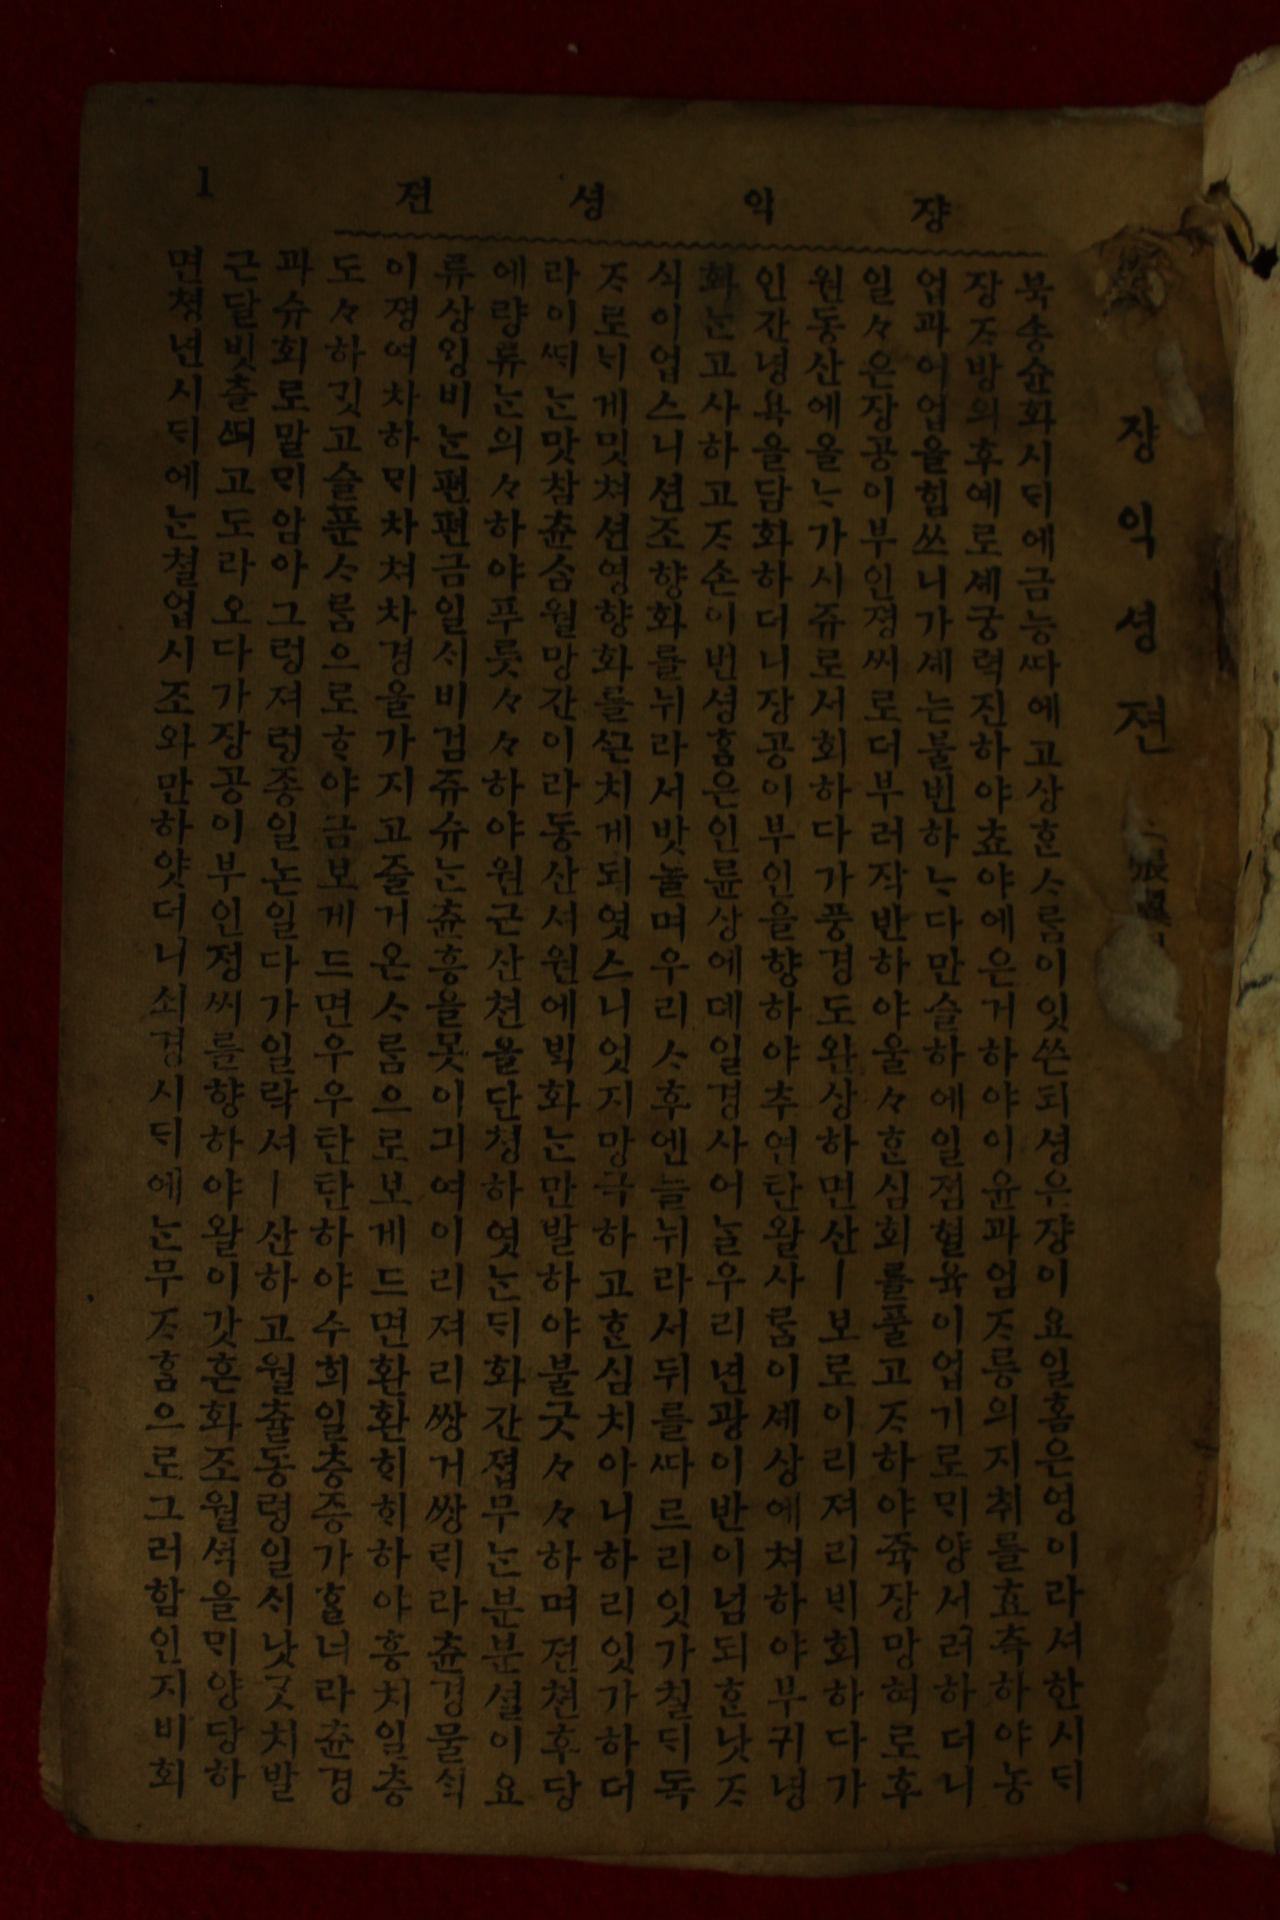 쟝익셩젼
1
쟝익셩젼
북송슌화시ᄃᆡ에금능ᄯᅡ에고상ᄒᆞᆫᄉᆞᄅᆞᆷ이잇쓴되셩은쟝이요일홈은영이라셔한시ᄃᆡ
장ᄌᆞ방의후예로셰궁력진하야쵸야에은거하야이윤과엄ᄌᆞ릉의지취를효측하야농
업과어업을힘쓰니가셰는불번하ᄂᆞ다만슬하에일졈혈육이업기로ᄆᆡ양서러하더니
일々은장공이부인졍씨로더부러작반하야울々ᄒᆞᆫ심회를풀고ᄌᆞ하야쥭장망혀로후
원동산에올ᄂᆞ가시쥬로서회하다가풍경도완상하면산ㅣ보로이리져리ᄇᆡ회하다가
인간녕욕을담화하더니장공이부인을향하야추연탄왈사ᄅᆞᆷ이셰상에쳐하야부귀녕
화ᄂᆞᆫ고사하고ᄌᆞ손이번셩홈은인륜상에뎨일경사어ᄂᆞᆯ우리년광이반이넘되ᄒᆞᆫ낫ᄌᆞ
식이업스니션조향화를뉘라서밧놀며우리ᄉᆞ후엔늘뉘라서뒤를ᄯᅡ르리잇가칠ᄃᆡ독
ᄌᆞ로ᄂᆡ게밋쳐션영향화를ᄭᅳᆫ치게되엿스니엇지망극하고ᄒᆞᆫ심치아니하리잇가하더
라이ᄯᆡᄂᆞᆫ맛참츈슴월망간이라동산셔원에ᄇᆡᆨ화ᄂᆞᆫ만발하야불긋々々하며젼쳔후당
에량류ᄂᆞᆫ의々하야푸릇々々하야원근산쳔을단쳥하엿ᄂᆞᆫᄃᆡ화간졉무ᄂᆞᆫ분분셜이요
류상ᄋᆡᆼ비ᄂᆞᆫ편편금일ᄉᆡ비검쥬슈ᄂᆞᆫ츈흥을못이긔여이리져리쌍거쌍ᄅᆡ라츈경물ᄉᆡᆨ
이졍여차하ᄆᆡ차쳐차경을가지고줄거온ᄉᆞᄅᆞᆷ으로보게드면환환희희하야흥치일층
도々하깃고슬푼ᄉᆞᄅᆞᆷ으로ᄒᆞ야금보게드면우우탄탄하야수희일층증가ᄒᆞᆯ너라츈경
과슈회로말ᄆᆡ암아그렁져렁종일논일다가일락셔ㅣ산하고월츌동령일ᄉᆡ낫긋치발
근달빗츨ᄯᅴ고도라오다가장공이부인졍씨를향하야왈이갓흔화조월셕을ᄆᆡ양당하
면쳥년시ᄃᆡ에ᄂᆞᆫ쳘업시조와만하얏더니쇠경시ᄃᆡ에ᄂᆞᆫ무ᄌᆞ홈으로그러함인지비회